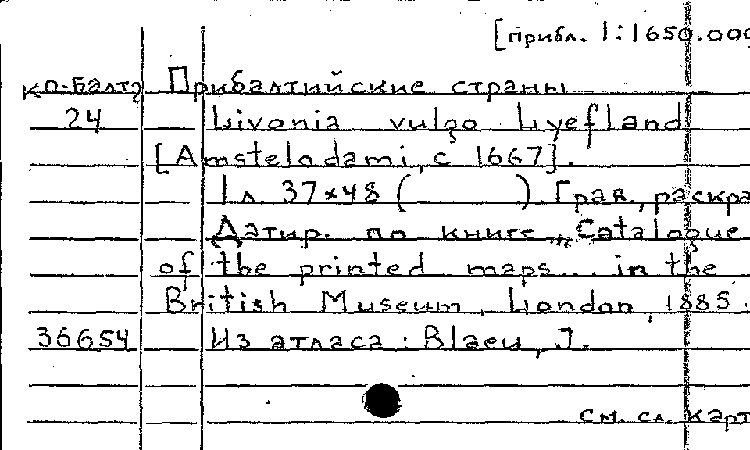 [прибл. 1:1650.000
Ко-Балт Прибалтийские страны
24 Livonia vulgo Lyefland
[Amstelodami, c 1667].
1 л. 37×48 ( ). Грав., раскра
Датир. по книге „Catalogue
of the printed maps... in the
British Museum, London, 1885.
36654 Из атласа: Blaeu, J.
см. сл. карт